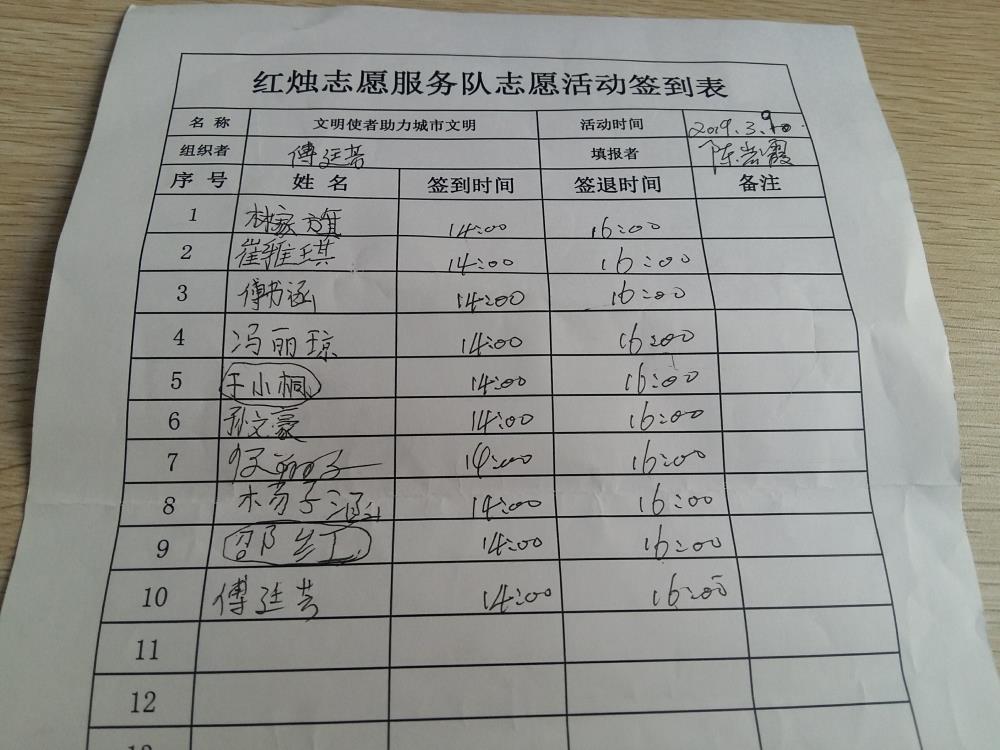 红烛志愿服务队志愿活动签到表
名称 文明使者助力城市文明 活动时间 2019.3.9
组织者 傅廷芳 填报者 陈岩霞
序号 姓名 签到时间 签退时间 备注
1 林家旗 14:00 16:00
2 崔雅琪 14:00 16:00
3 傅书涵 14:00 16:00
4 冯丽琼 14:00 16:00
5 于小桐 14:00 16:00
6 孙文豪 14:00 16:00
7 14:00 16:00
8 子涵 14:00 16:00
9 邵红 14:00 16:00
10 傅廷芳 14:00 16:00
11
12
13